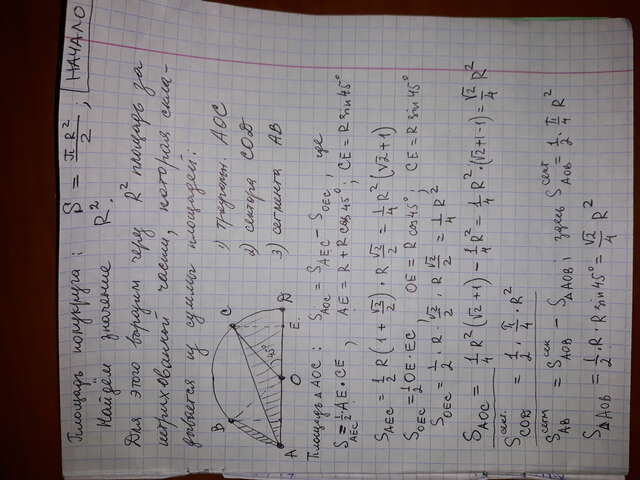 Площадь полукруга: S = πR²/2; НАЧАЛО
Найдём значение R².
Для этого выразим через R² площадь за
штрихованной части, которая скла-
дывается из суммы площадей:
1) треугольн. AOC
2) сектора COD
3) сегмента AB
B C 45° A O E D
Площадь △AOC: S_AOC = S_AEC − S_OEC, где
S_AEC = 1/2 AE · CE, AE = R + R cos 45°; CE = R sin 45°
S_AEC = 1/2 R(1 + √2/2) · R √2/2 = 1/4 R²(√2+1)
S_OEC = 1/2 OE · EC, OE = R cos 45°; CE = R sin 45°
S_OEC = 1/2 · R · √2/2 · R √2/2 = 1/4 R²
S_AOC = 1/4 R²(√2+1) − 1/4 R² = 1/4 R² · (√2+1−1) = √2/4 R²
S_COD^сект. = 1/2 · π/4 · R²
S_AB^сегм = S_AOB^сек − S_△AOB; здесь S_AOB^сект = 1/2 · π/4 R²
S_△AOB = 1/2 · R · R sin 45° = √2/4 R²